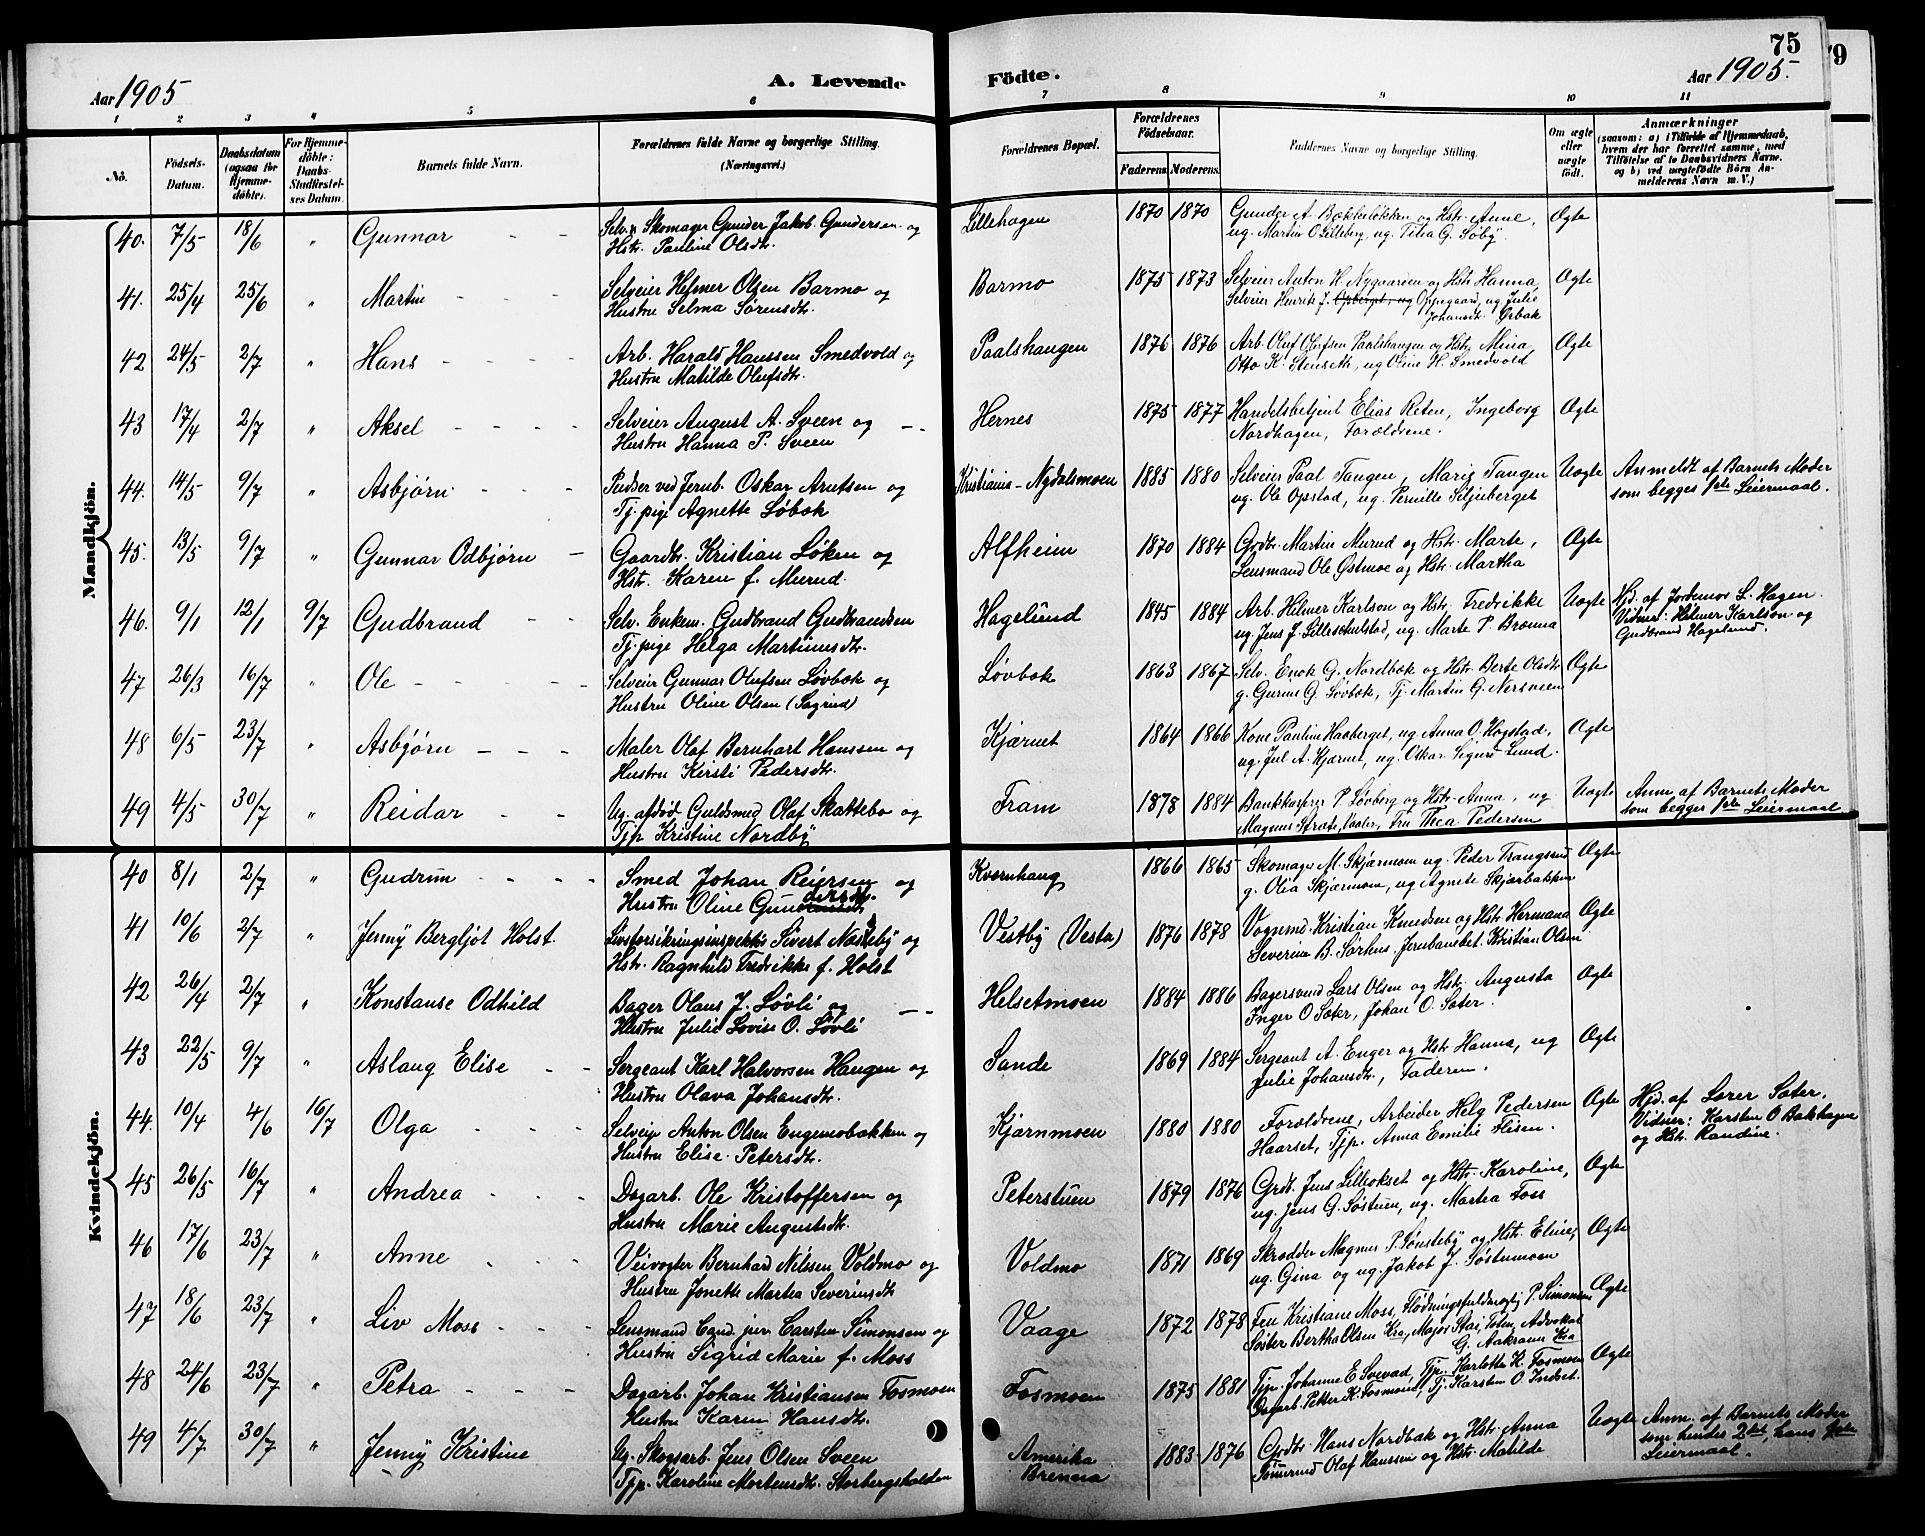 75
79
Aar 1905
A. Levende Födte.
Aar 1905.
1 2 3 4 5 6 7 8 9 10 11
No.
Födsels-Datum.
Daabsdatum (ogsaa for Hjemmedöbte).
For Hjemmedöbte: Daabs-Stadfæstelses Datum.
Barnets fulde Navn.
Forældrenes fulde Navne og borgerlige Stilling. (Næringsvei.)
Forældrenes Bopæl.
Forældrenes Födselsaar.
Faderens. Moderens.
Faddernes Navne og borgerlige Stilling.
Om ægte eller uægte födt.
Anmærkninger (saasom: a) i Tilfælde af Hjemmedaab, hvem der har forrettet samme, med Tilföielse af to Daabsvidners Navne, og b) ved uægtefödte Börn Anmelderens Navn m. V.)
Mandkjön.
40. 7/5 18/6 " Gunnar - - Selv. Skomager Gunder Jakob Gundersen og Lillehagen 1870 1870 Gunder A. Bækkeløkken og Hstr. Anne, Ægte
Hstr. Pauline Olsdtr. ug. Martin O Lilleberg, ug. Tilia G. Søby.
41. 25/4 25/6 " Martin - - - Selveier Helmer Olsen Barmo og Barmo 1875 1873 Selveier Anton H. Nygaarden og Hstr. Hanna, Ægte
Hustru Selma Sørensdtr. Selveier Henrik J. Opberget, ug Oppegaard, ug. Julie
Johansdtr. Ørbak
42 24/5 2/7 " Hans - - - - Arb. Harald Hanssen Smedvold og Paalshaugen 1876 1876 Arb. Oluf Olufsen Paalshaugen og Hstr. Mina, Ægte
Hustru Matilde Olufsdtr. Otto K. Stenseth, ug Oline H. Smedvold
43 17/4 2/7 " Aksel - - - - Selveier August A. Sveen og - - Hernes 1875 1877 Handelsbetjent Elias Reten, Ingeborg Ægte
Hustru Hanna P. Sveen Nordhagen, Forældrene.
44. 14/5 9/7 " Asbjørn - - - Pudser ved Jernb. Oskar Arntsen og Kristiania - Nydalsmoen 1885 1880 Selveier Paal Tangen, Marig Tangen Uægte Anmeldt af Barnets Moder
Tj. pige Agnette Løbak ug. Ole Opstad, ug. Pernille Siljuberget som begges 1ste Leiermaal.
45. 13/5 9/7 " Gunnar Odbjørn - Gaardbr. Kristian Løken og Alfheim 1870 1884 Grdbr. Martin Murud og Hstr. Marte, Ægte
Hstr. Karen f. Murud. Lensmand Ole Østmoe og Hstr. Martha
46. 9/1 12/1 9/7 Gudbrand - - Selv. Enkem. Gudbrand Gudbrandsen Hagelund 1845 1884 Arb. Hilmer Karlson og Hstr. Fredrikke Uægte Hjd. af Jordemor L. Hagen.
Tj. pige Helga Martinusdtr. ug. Jens J. Lilleschulstad, ug. Marte P. Brænna Vidner: Helmer Karlson og
Gudbrand Hagelund.
47 26/3 16/7 " Ole - - - - Selveier Gunnar Olufsen Løvbak og Løvbak 1863 1867 Selv. Enok G. Nordbæk og Hstr. Berte Olsdtr. Ægte
Hustru Oline Olsen (Sagrud) g. Gurine G. Løvbak, Tj. Martin G. Nersveen
48 6/5 23/7 " Asbjørn - - - Maler Olaf Bernhart Hanssen og Kjærnet 1864 1866 Kone Pauline Haaberget, ug Anna O. Hogstad, Ægte
Hustru Kirsti Pedersdtr. ug. Jul A. Kjærnet, ug. Oskar Sigurd Lund.
49 4/5 30/7 " Reidar - - Ug. afdöd Guldsmed Olaf Skattebo og Fram 1878 1884 Bankkasserer P. Løvberg og Hstr. Anna, ug Uægte Anm. af Barnets Moder
Tjp Kristine Nordby Magnus Stræte, Vaaler, Fru Thea Pedersen som begges 1ste Leiermaal.
Kvindekjön.
40 8/1 2/7 " Gudrun - - - Smed Johan Reiersen og Kværnhaug 1866 1865 Skomager M. Skjærmoen ug. Peder Trangsrud Ægte
Hustru Oline Gundersdtr. g. Olia Skjærmoen, ug Agnete Skjærbakken
41 10/6 2/7 " Jenny Bergljot Holst. Livsforsikringsinspektör Sivert Næsseby og Vestby (Vesta) 1876 1878 Vognmd. Kristian Knudsen og Hstr. Hermana Ægte
Hstr. Ragnhild Fredrikke f. Holst Severine B. Sørhus, Jernbanebet. Kristian Olsen
42 26/4 2/7 " Konstanse Odhild Bager Olaus J. Løvli og - - Helsetmoen 1884 1886 Bagersvend Lars Olsen og Hstr. Augusta Ægte
Hustru Julie Lovise O. Løvli Inger O Sæter, Johan O. Sæter.
43 22/5 9/7 " Aslaug Elise - - Sergeant Karl Halvorsen Haugen og Sande 1869 1884 Sergeant A. Enger og Hstr. Hanna, ug Ægte
Hustru Olava Johansdtr. Julie Johansdtr., Faderen.
44. 10/4 4/6 16/7 Olga - - - Selveier Anton Olsen Engemobakken og Kjærnmoen 1880 1880 Forældrene, Arbeider Helg Pedersen Ægte Hjd. af Lærer Sæter.
Hustru Elise Petersdtr. Haarset, Tjp. Anna Emilie Flisen. Vidner: Karsten O Bakhagen
og Hstr. Randine.
45 26/5 16/7 " Andrea - - - Dagarb. Ole Kristoffersen og Peterstuen 1879 1876 Grdb. Jens Lilleokset og Hstr. Karoline, Ægte
Hustru Marie Augustsdtr. ug. Jens G. Søstuen, ug. Martea Foss
46 17/6 23/7 " Anne - - - Veivogter Bernhard Nilssen Voldmo og Voldmo 1871 1869 Skrædder Magnus P. Sønsteby og Hstr. Eline, Ægte
Hustru Jonette Martea Severinsdtr ug. Gina og ug. Jakob J. Søstumoen
47 18/6 23/7 " Liv Moss - - - Lensmand Cand. jur. Carsten Simonsen og Vaage 1872 1878 Fru Kristiane Moss, Flødningsfuldmægtig P. Simonsen Ægte
Hustru Sigrid Marie f. Moss Söster Bertha Olsen Kra, Major Stai, Toten, Advokat
G. Aakrann Kra
48 24/6 23/7 " Petra - - - Dagarb. Johan Kristiansen Fosmoen Fosmoen 1875 1881 Tjp. Johanne E Svevad, Tjp. Karlotta K. Fosmoen Ægte
Hustru Karen Hansdtr. Dagarb. Petter K. Fosmoen, Tj. Karsten O. Indset.
49 4/7 30/7 " Jenny Kristine Ug. Skogsarb. Jens Olsen Sveen Amerika 1883 1876 Grdbr. Hans Nordbak og Hstr. Anna Uægte Anm. af Barnets Moder
Tjp. Karoline Mortensdtr. Storbergsholden Brenna Tømmermd Olaf Hanssen og Hstr. Matilde som hendes 2det hans 1ste
Leiermaal.